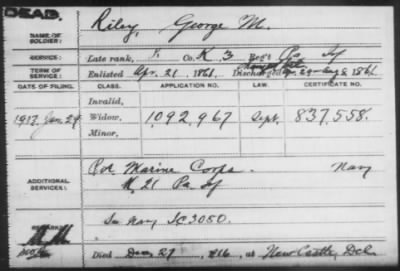 DEAD.
NAME OF SOLDIER: Riley, George M.
SERVICE: Late rank, Co. K 3 Reg't Pa Inf
TERM OF SERVICE: Enlisted Apr. 21, 1861. Discharged
DATE OF FILING. CLASS. APPLICATION NO. LAW. CERTIFICATE NO.
Invalid,
1917 Jan. 29 Widow, 1,092,967 Sept. 837,558.
Minor,
ADDITIONAL SERVICES: Pvt Marine Corps. Navy
K, 21 Pa Inf
REMARKS: See Navy SC 3080.
Died Dec 27, 1916, at New Castle, Del.